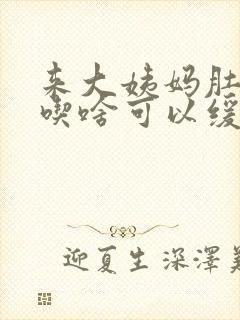 来大姨妈肚
喫啥可以缓
迎夏生深澤